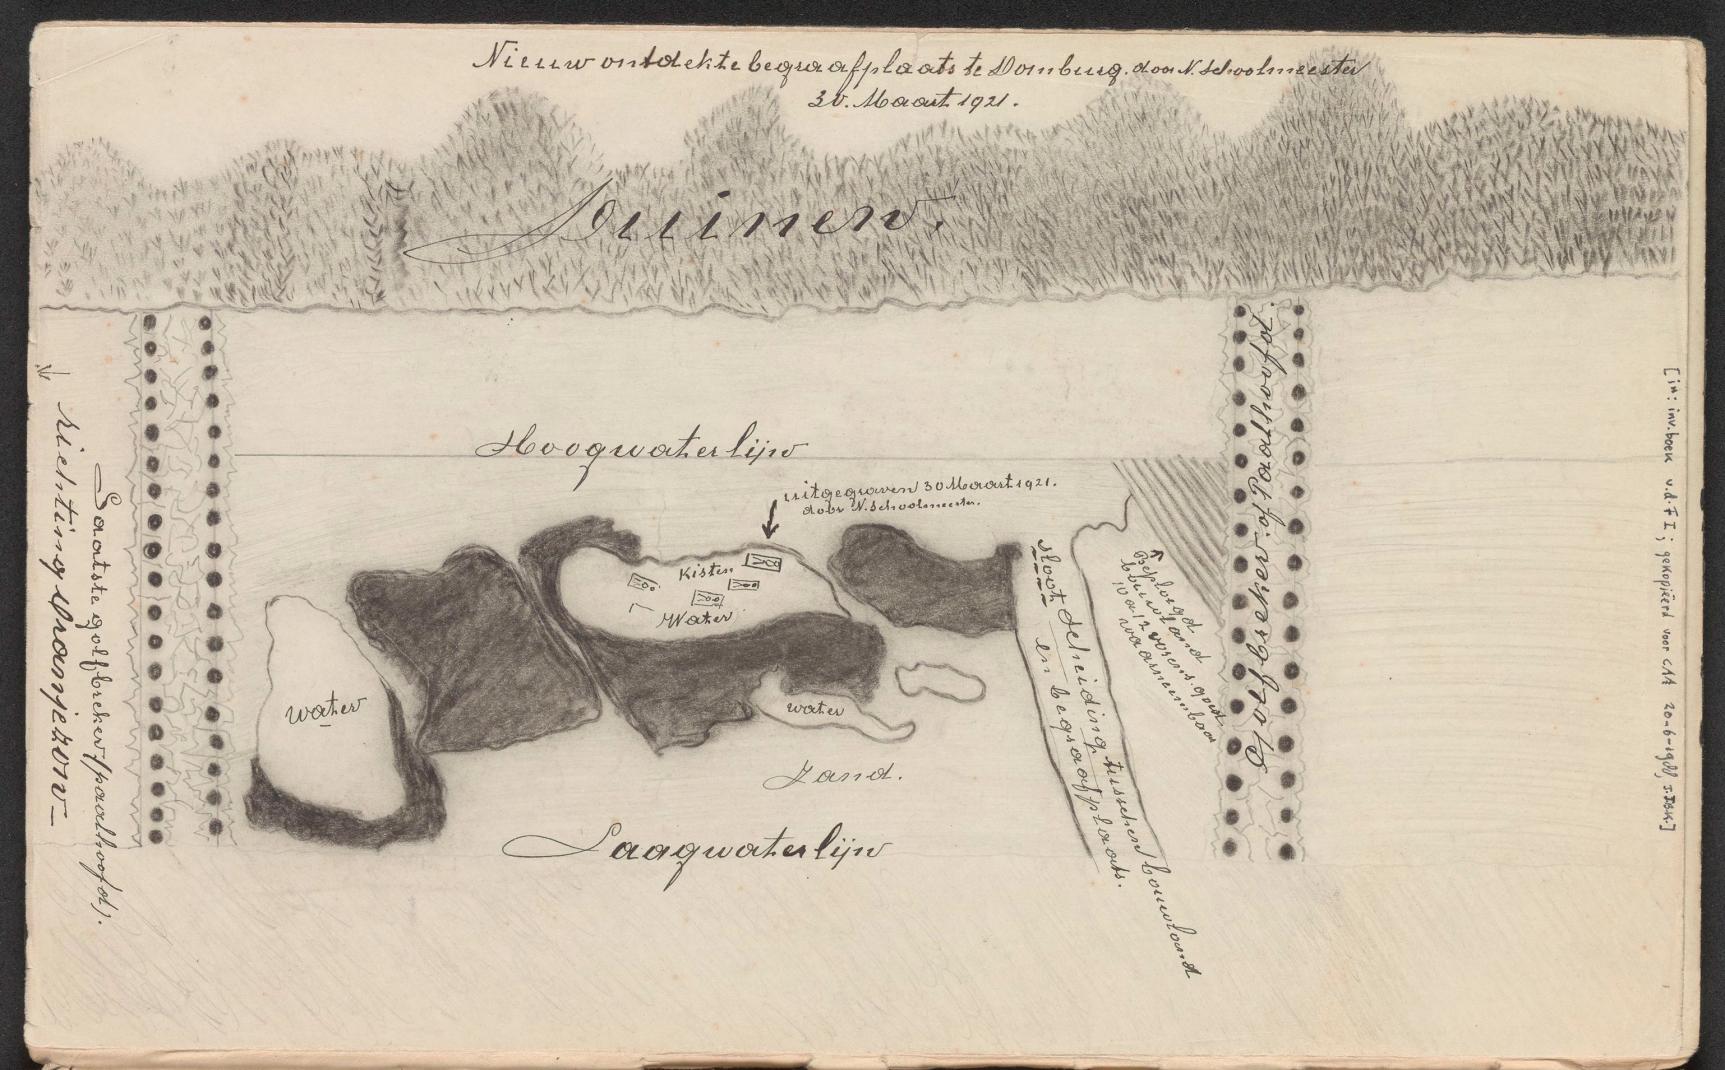 Nieuw ontdekte begraafplaats te Domburg. door N. Schoolmeester
30. Maart 1921.
Duinen.
Hoogwaterlijn
uitgegraven 30 Maart 1921.
door N. Schoolmeester.
Kisten
Water
water
water
Zand.
Laagwaterlijn
sloot scheiding tusschen bouwland
en begraafplaats.
Beploegd
bouwland
10 a 12 vorens. goed
waarneembaar
Golfbreker. of Paalhoofd.
Laatste golfbreker/paalhoofd).
richting Oranjezon
[in: inv. boek v.d. F I; gekopieerd voor CAA 20-6-1988, J.